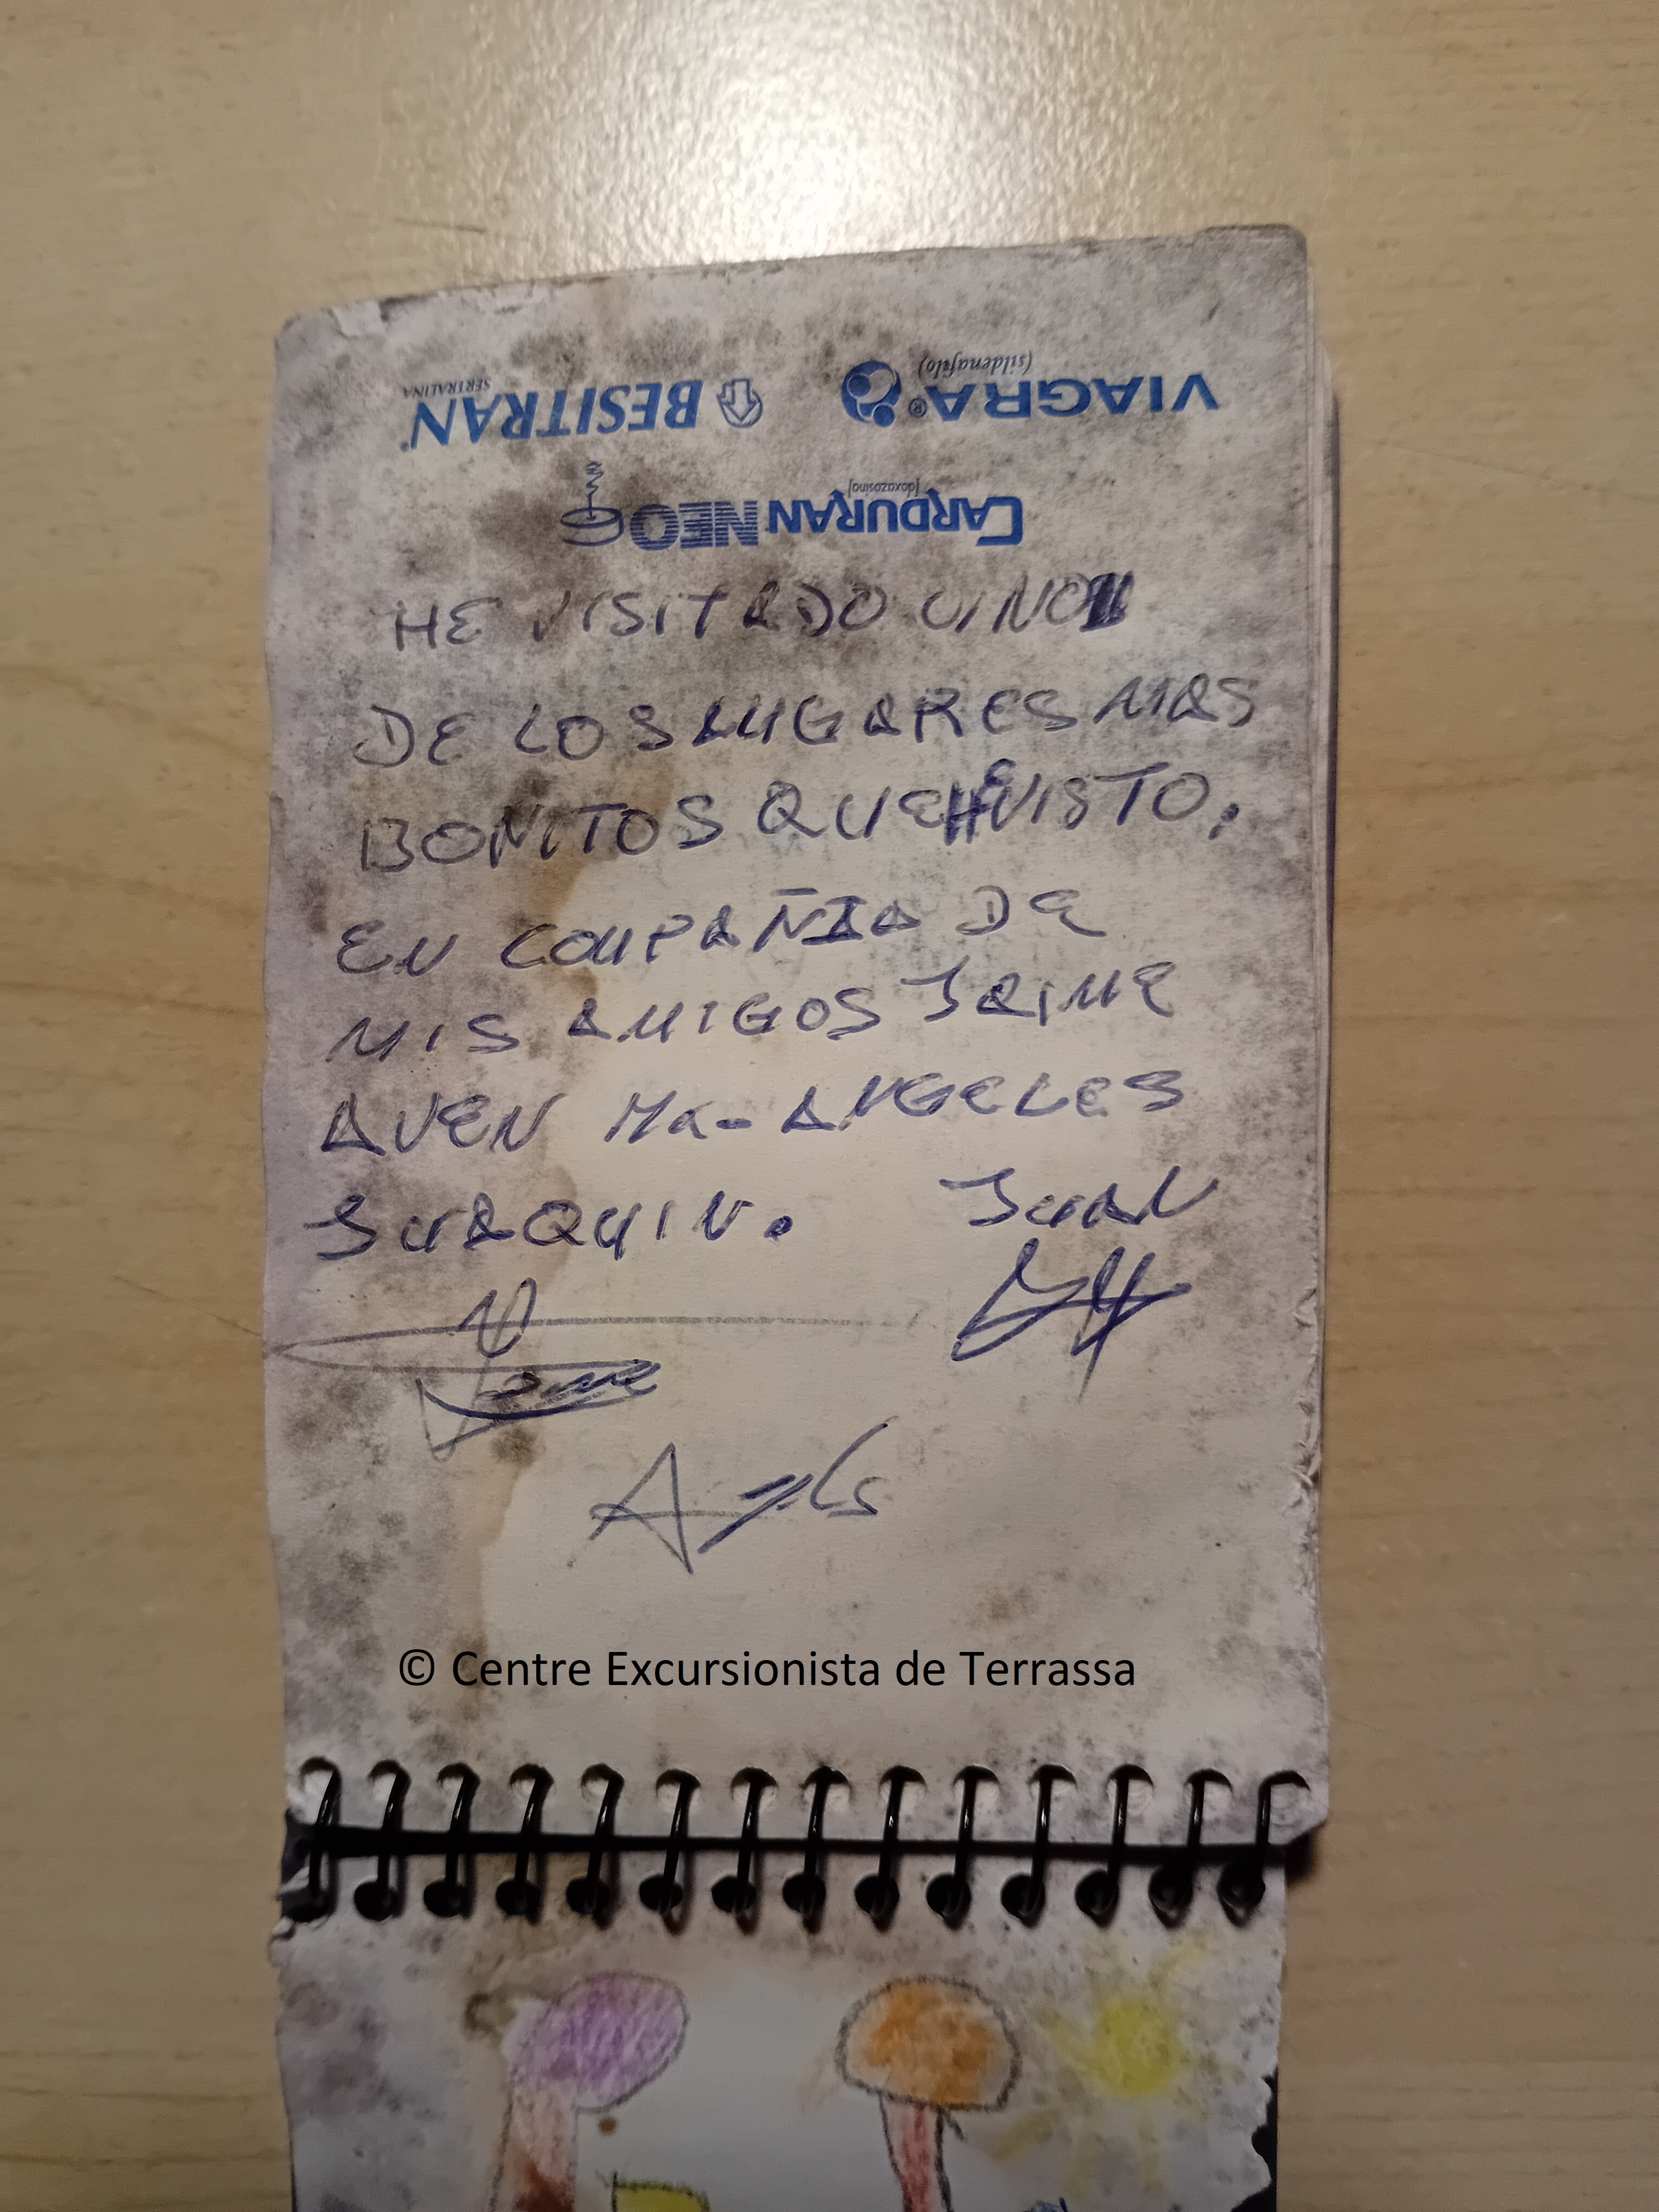 VIAGRA®
(sildenafilo)
BESITRAN®
SERTRALINA
CARDURAN NEO
[doxazosina]
HE VISITADO UNO
DE LOS LUGARES MAS
BONITOS QUE HE VISTO.
EN COMPAÑIA DE
MIS AMIGOS JAIME
AVEN Ma-ANGELES
JUAQUIN. JUAN
© Centre Excursionista de Terrassa